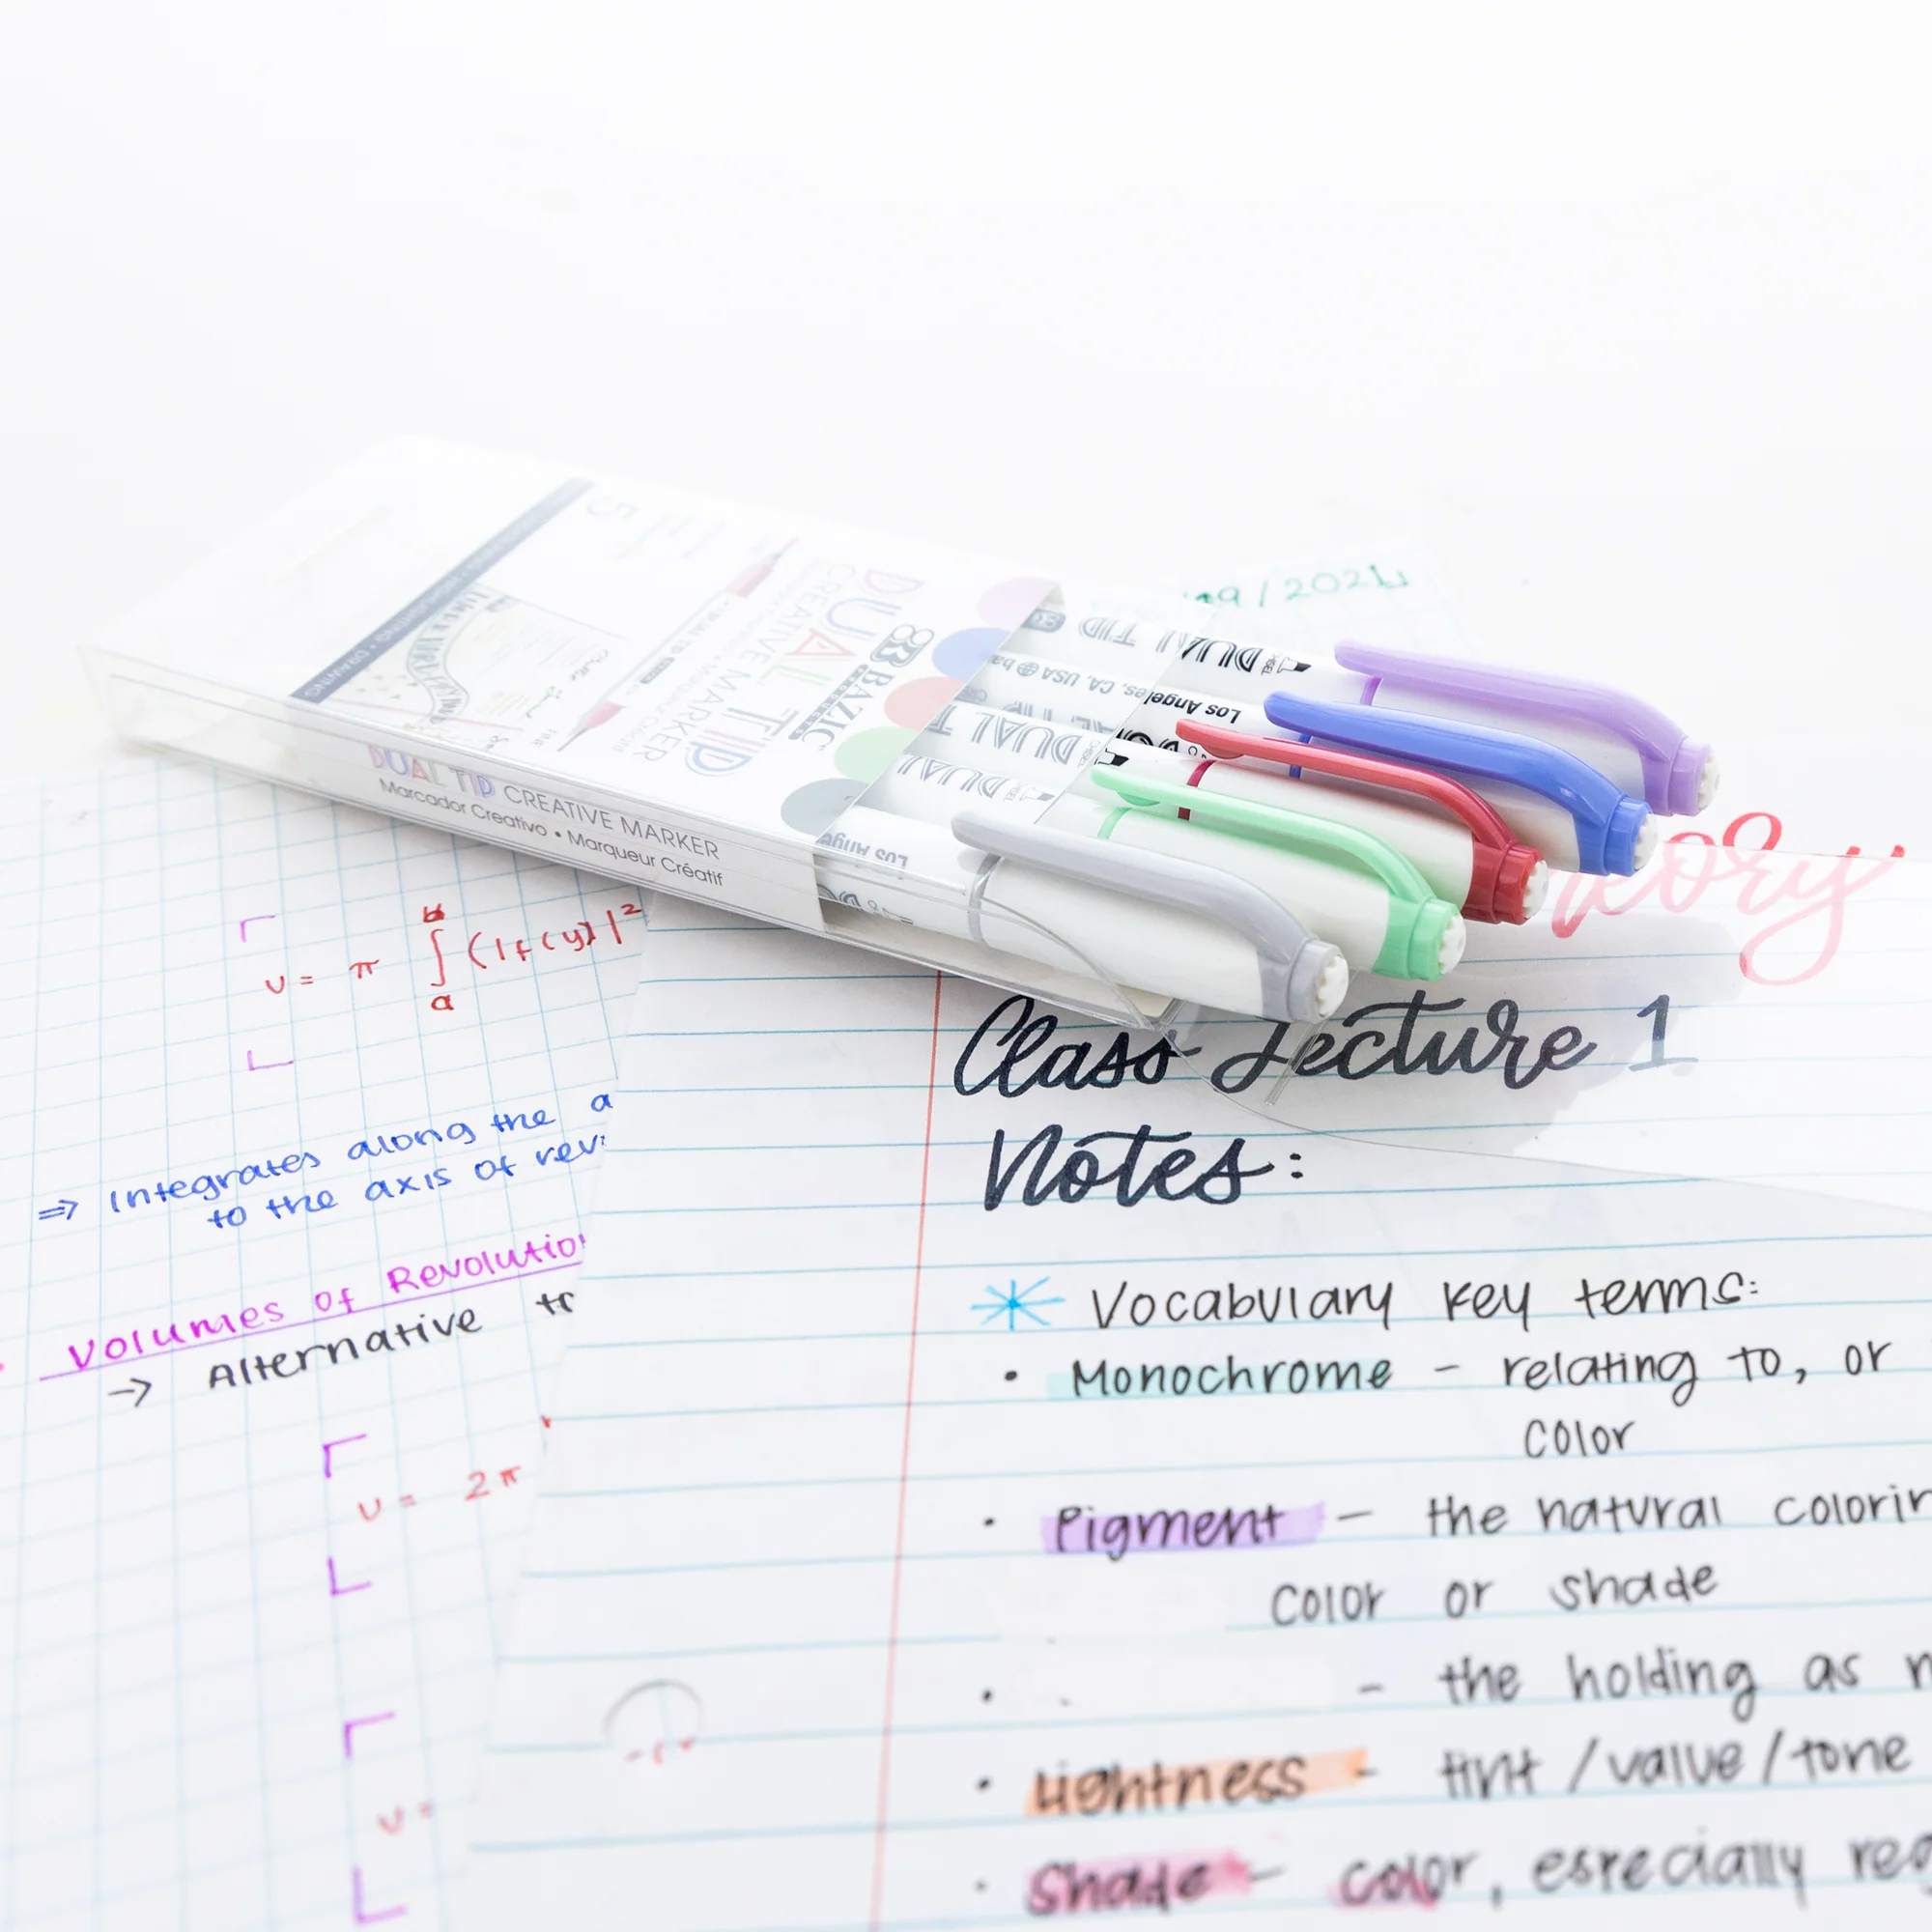 09/2021
5
DRAWING
FINE
BAZIC
DUAL TIP
CREATIVE MARKER
DUAL TIP CREATIVE MARKER
Marcador Creativo • Marqueur Créatif
DUAL TIP
Los Angeles, CA, USA
DUAL TIP
DUAL
Los Ange
v = π ∫ (|f(y)|²
b
a
⇒ Integrates along the a
to the axis of rev
Volumes of Revolutio
→ Alternative tr
v = 2π
v =
eory
Class Lecture 1
Notes:
Vocabulary key terms:
• Monochrome – relating to, or
color
• Pigment – the natural colorin
color or shade
• – the holding as
• Lightness – tint / value / tone
• Shade – color, especially reg